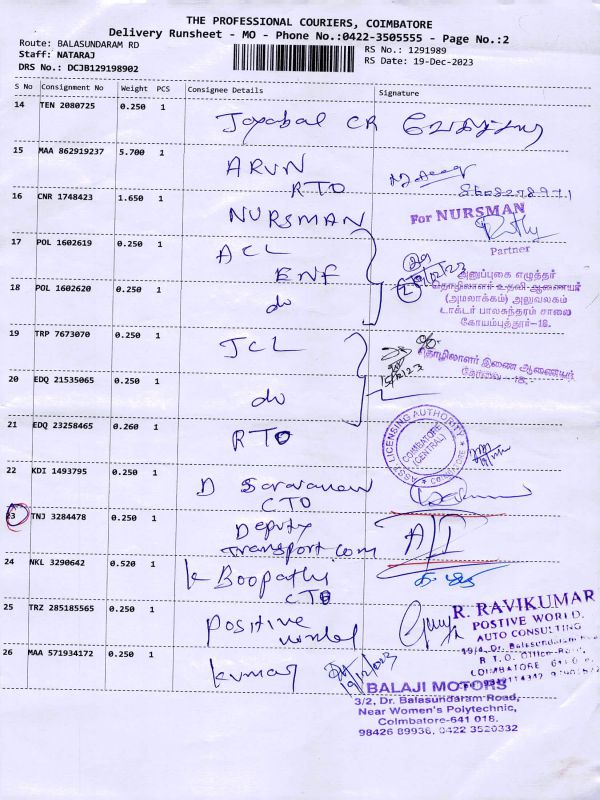 THE PROFESSIONAL COURIERS, COIMBATORE
Delivery Runsheet - MO - Phone No.:0422-3505555 - Page No.:2
Route: BALASUNDARAM RD
RS No.: 1291989
Staff: NATARAJ
RS Date: 19-Dec-2023
DRS No.: DCJB129198902
S No Consignment No Weight PCS Consignee Details Signature
14 TEN 2080725 0.250 1
CR
15 MAA 862919237 5.700 1
ARUN
RTO
16 CNR 1748423 1.650 1
NURSMAN
For NURSMAN
Partner
17 POL 1602619 0.250 1
ACL
ENF
18 POL 1602620 0.250 1
do
அனுப்புகை எழுத்தர்
தொழிலாளர் உதவி ஆணையர்
(அமலாக்கம்) அலுவலகம்
டாக்டர் பாலசுந்தரம் சாலை
கோயம்புத்தூர்-18.
19 TRP 7673070 0.250 1
JCL
தொழிலாளர் இணை ஆணையர்
20 EDQ 21535065 0.250 1
do
21 EDQ 23258465 0.260 1
RTO
ASST LICENSING AUTHORITY
COIMBATORE
(CENTRAL)
COIMBATORE
22 KDI 1493795 0.250 1
D Saravanan
CTO
23 TNJ 3284478 0.250 1
Deputy
Transport com
24 NKL 3290642 0.520 1
K Boopathi
CTO
25 TRZ 285185565 0.250 1
Positive
World
R. RAVIKUMAR
POSTIVE WORLD.
AUTO CONSULTING
R T.O. Office Road,
COIMBATORE
26 MAA 571934172 0.250 1
Kumar
19/12/2023
BALAJI MOTORS
3/2, Dr. Balasundaram Road,
Near Women's Polytechnic,
Coimbatore-641 018.
98426 89936, 0422 3520332